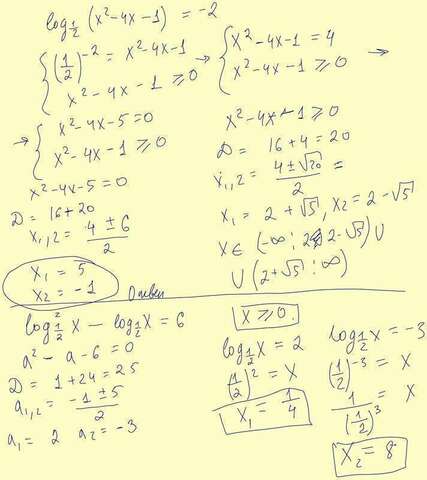 log_{1/2} (x² - 4x - 1) = -2
{ (1/2)^{-2} = x² - 4x - 1
x² - 4x - 1 ≥ 0
→ { x² - 4x - 1 = 4
x² - 4x - 1 ≥ 0 →
→ { x² - 4x - 5 = 0
x² - 4x - 1 ≥ 0
x² - 4x - 5 = 0
D = 16 + 20
x_{1,2} = (4 ± 6)/2
x₁ = 5
x₂ = -1
Ответ
x² - 4x - 1 ≥ 0
D = 16 + 4 = 20
x_{1,2} = (4 ± √20)/2 =
x₁ = 2 + √5, x₂ = 2 - √5
x ∈ (-∞; 2 - √5) ∪
∪ (2 + √5; ∞)
log²_{1/2} x - log_{1/2} x = 6
a² - a - 6 = 0
D = 1 + 24 = 25
a_{1,2} = (-1 ± 5)/2
a₁ = 2 a₂ = -3
x ≥ 0.
log_{1/2} x = 2
(1/2)² = x
x₁ = 1/4
log_{1/2} x = -3
(1/2)^{-3} = x
1/(1/2)³ = x
x₂ = 8